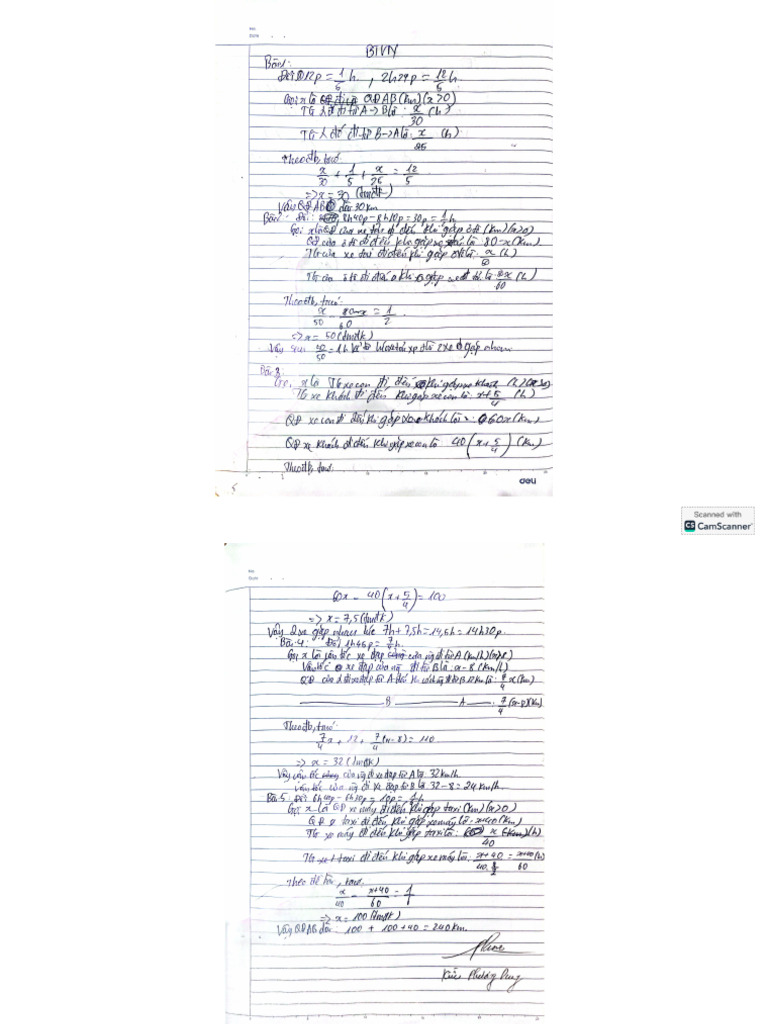 BTVN
Bài 1:
Đổi 12p = 1/5 h , 2h24p = 12/5 h.
Gọi x là QĐ AB (Km) (x>0)
TG đi từ A → B là: x/30 (h)
TG đi từ B → A là: x/25 (h)
Theo đb, ta có:
x/30 + 1/5 + x/25 = 12/5
=> x = 30 (tmđk)
Vậy QĐ AB dài 30 Km
Bài 2: Đổi: 8h40p - 8h10p = 30p = 1/2 h
Gọi x là QĐ của xe tải đi đến khi gặp ô tô (Km) (x>0)
QĐ của ô tô đi đến khi gặp xe tải là: 80-x (Km)
TG của xe tải đi đến khi gặp ô tô là: x (h)
TG của ô tô đi đến khi gặp xe tải là x (h)
60
Theo đb, ta có:
x/50 - 80-x/60 = 1/2
=> x = 50 (tmđk)
Vậy sau 50/50 = 1h 2 xe gặp nhau
Bài 3:
Gọi x là TG xe con đi đến khi gặp xe khách (h) (x>0)
TG xe khách đi đến khi gặp xe con là: x+5/4 (h)
QĐ xe con đi đến khi gặp xe khách là: 60x (Km)
QĐ xe khách đi đến khi gặp xe con là 40(x+5/4) (Km)
Theo đb, ta có:
deli
Scanned with
CS CamScanner
60x - 40(x+5/4) = 100
=> x = 7,5 (tmđk)
Vậy 2 xe gặp nhau lúc 7h + 7,5h = 14,5h = 14h30p.
Bài 4: Đổi 1h45p = 7/4 h.
Gọi x là vận tốc xe đạp của ng đi từ A (Km/h) (x>8)
Vận tốc xe đạp của ng đi từ B là: x-8 (Km/h)
QĐ của đi xe đạp từ A đến 12 Km là: 7/4 x (Km)
B A 7/4 (x-8) (Km)
Theo đb, ta có:
7/4 x + 12 + 7/4 (x-8) = 110
=> x = 32 (tmđk)
Vậy vận tốc của ng đi xe đạp từ A là 32 km/h.
vận tốc của ng đi xe đạp từ B là 32-8 = 24 km/h.
Bài 5: Đổi 6h40p - 6h30p = 10p = 1 h
Gọi x là QĐ xe máy đi đến khi gặp taxi (Km) (x>0)
QĐ taxi đi đến khi gặp xe máy là: x+40 (Km)
TG xe máy đi đến khi gặp taxi là: x/40 (h)
TG xe taxi đi đến khi gặp xe máy là: x+40/40.3/2 = x+40/60 (h)
Theo đề bài, ta có:
x/40 - x+40/60 = 1
=> x = 100 (tmđk)
Vậy QĐ AB dài: 100 + 100 + 40 = 240 Km.